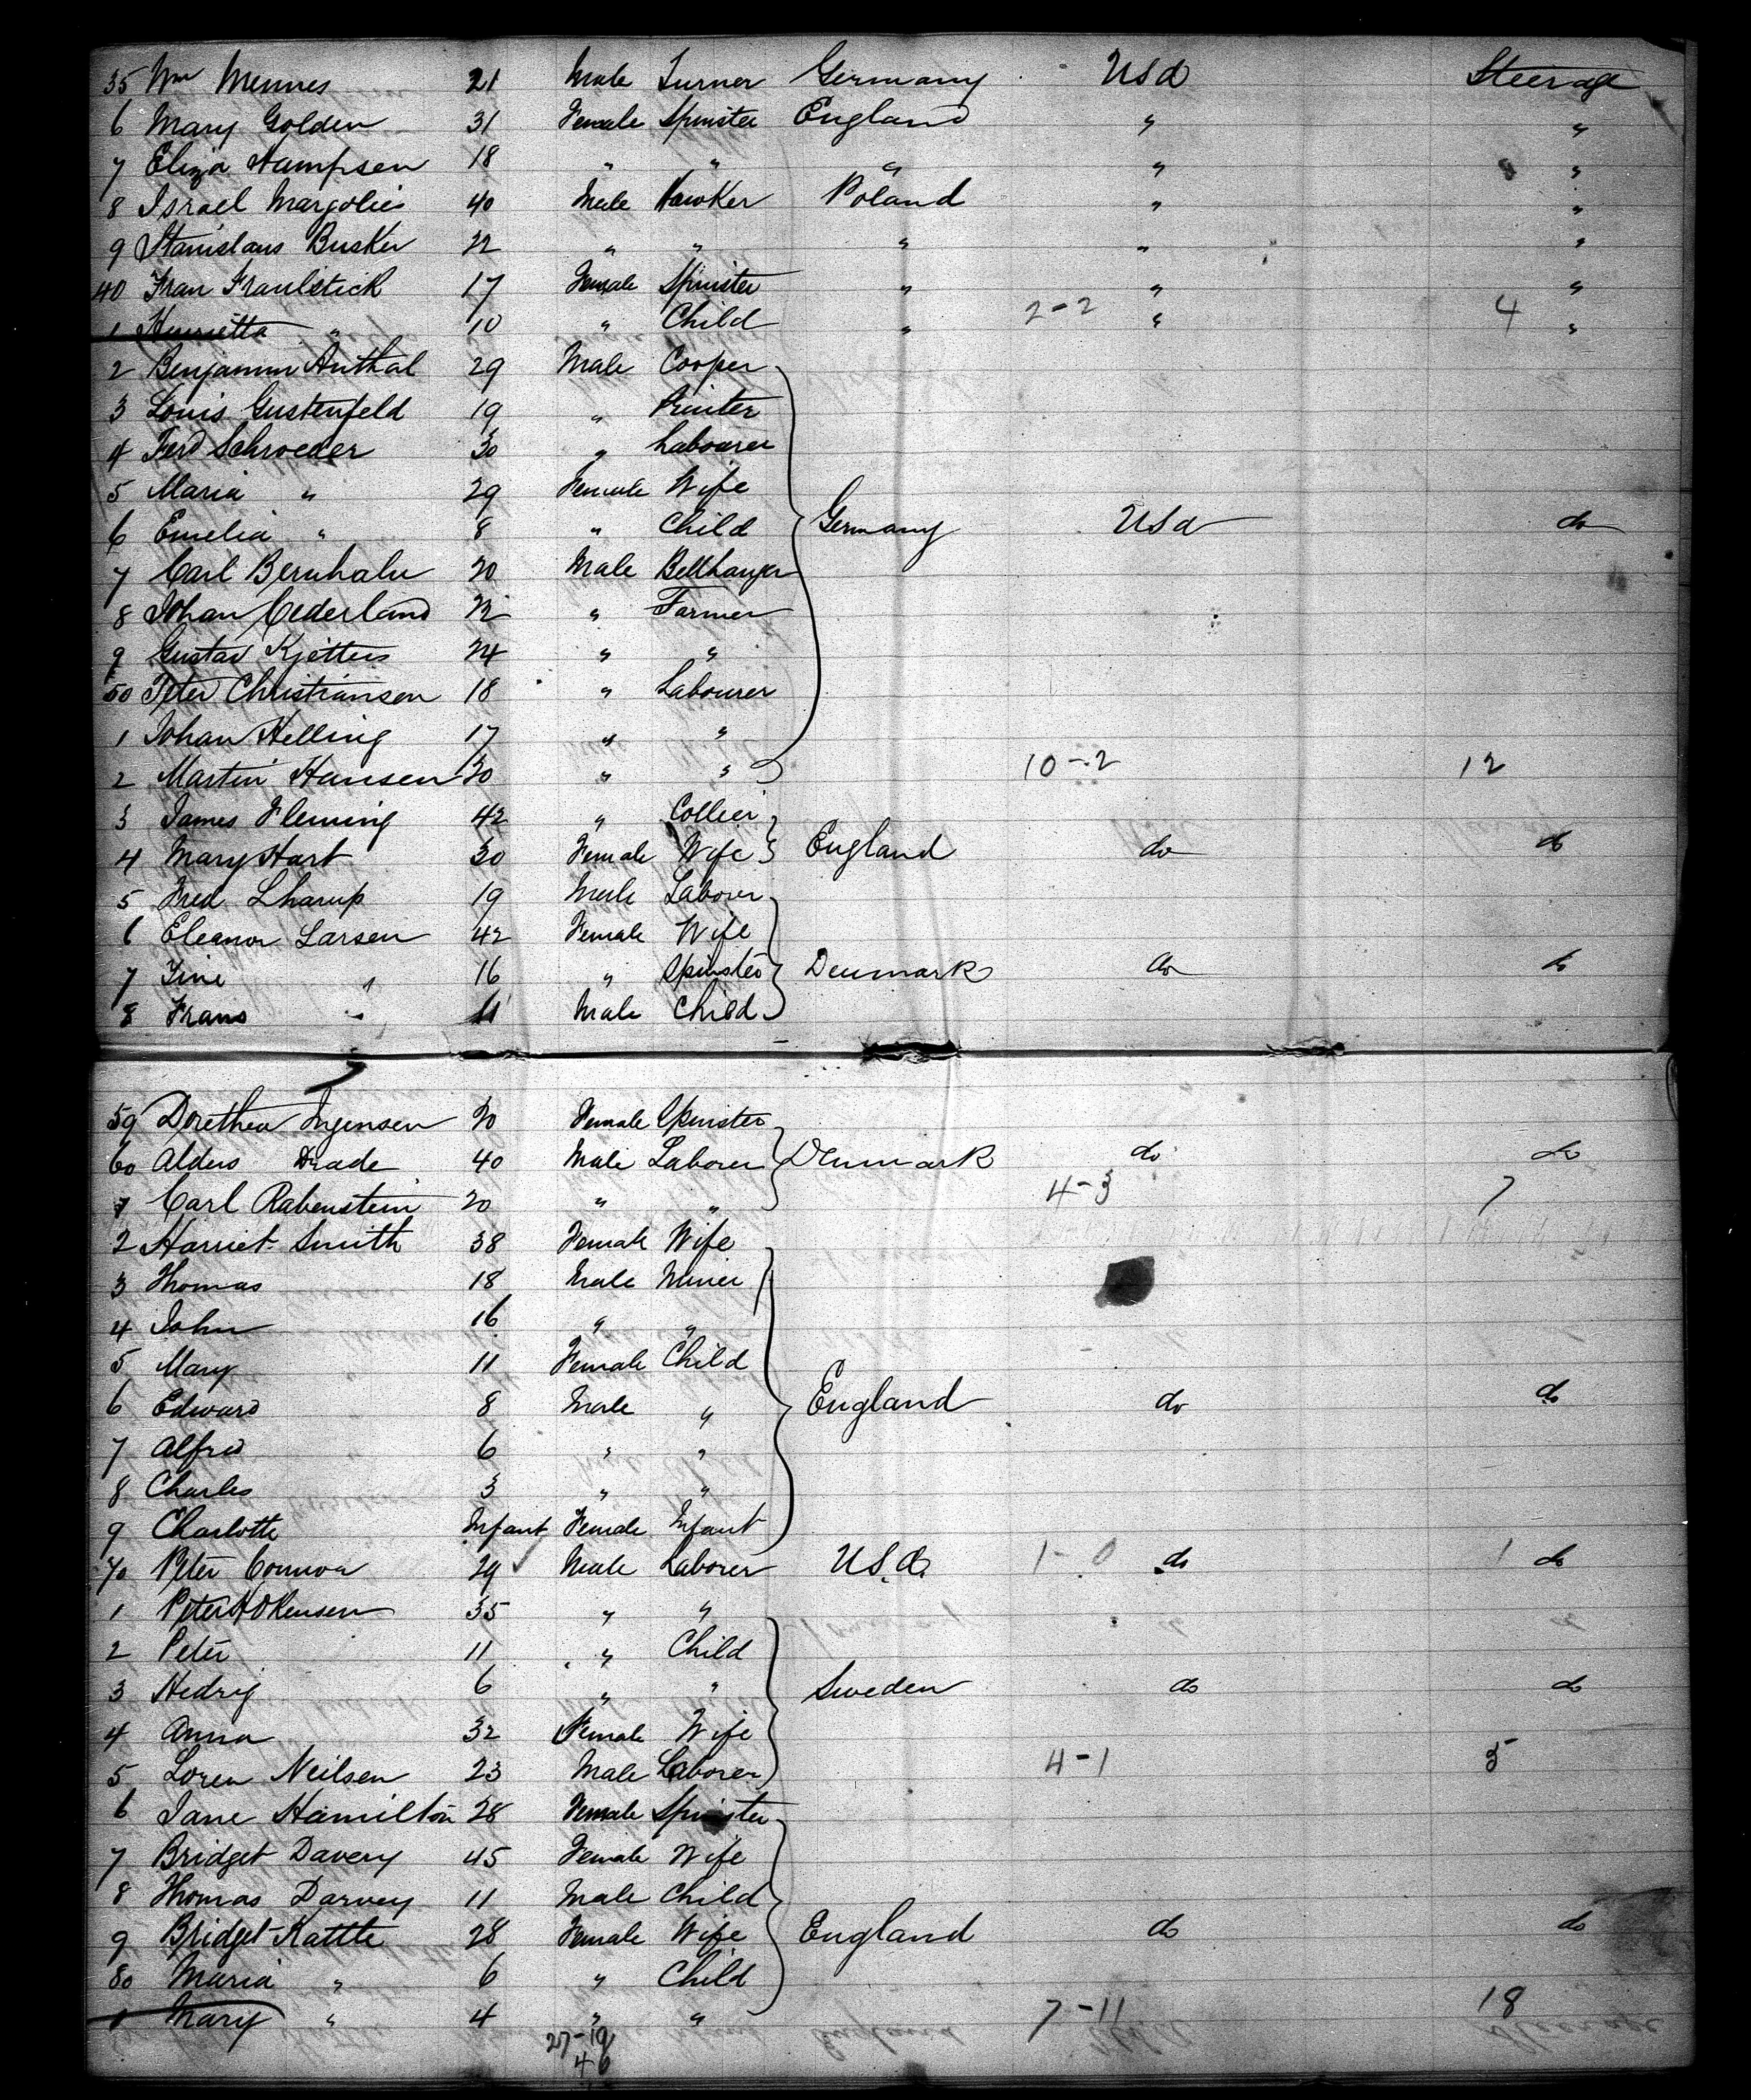 35 Wm Mennes 21 Male Turner Germany USa Steerage
6 Mary Golden 31 Female Spinster England " "
7 Eliza Hampsen 18 " " " " "
8 Israel Margolies 40 Male Hawker Poland " "
9 Stanislaus Busker 22 " " " " "
40 Fran Fraulstick 17 Female Spinster " " "
1 Henrietta " 10 " Child " 2-2 " 4 "
2 Benjamin Anthal 29 Male Cooper
3 Louis Gustenfeld 19 " Printer
4 Ferd Schroeder 30 " Labourer
5 Maria " 29 Female Wife
6 Emelia " 8 " Child Germany USa do
7 Carl 20 Male Bellhanger
8 Johan Cederland 22 " Farmer
9 Gustav 24 " "
50 Peter Christiansen 18 " Labourer
1 Johan Helling 17 " "
2 Martin Hansen 30 " " 10-2 12
3 James Fleming 42 " Collier
4 Mary Hart 30 Female Wife England do do
5 Fred 19 Male Laborer
6 Eleanor Larsen 42 Female Wife
7 Tine " 16 " Spinster Denmark do do
8 Frans " 11 Male Child
59 Dorethea 20 Female Spinster
60 Alders 40 Male Laborer Denmark do do
1 Carl Rabenstein 20 " " 4-3 7
2 Harriet Smith 38 Female Wife
3 Thomas 18 Male Miner
4 John 16 " "
5 Mary 11 Female Child
6 Edward 8 Male " England do do
7 Alfred 6 " "
8 Charles 3 " "
9 Charlotte Infant Female Infant
70 Peter Connor 29 Male Laborer U.S.a. 1-0 do 1 do
1 Peter 35 " "
2 Peter 11 " Child
3 Hedrig 6 " " Sweden do do
4 Anna 32 Female Wife
5 Loren Neilsen 23 Male Laborer 4-1 5
6 Jane Hamilton 28 Female Spinster
7 Bridget Davery 45 Female Wife
8 Thomas Darvey 11 Male Child
9 Bridget Kattle 28 Female Wife England do do
80 Maria " 6 " Child
1 Mary " 4 " " 7-11 18
27-19
46